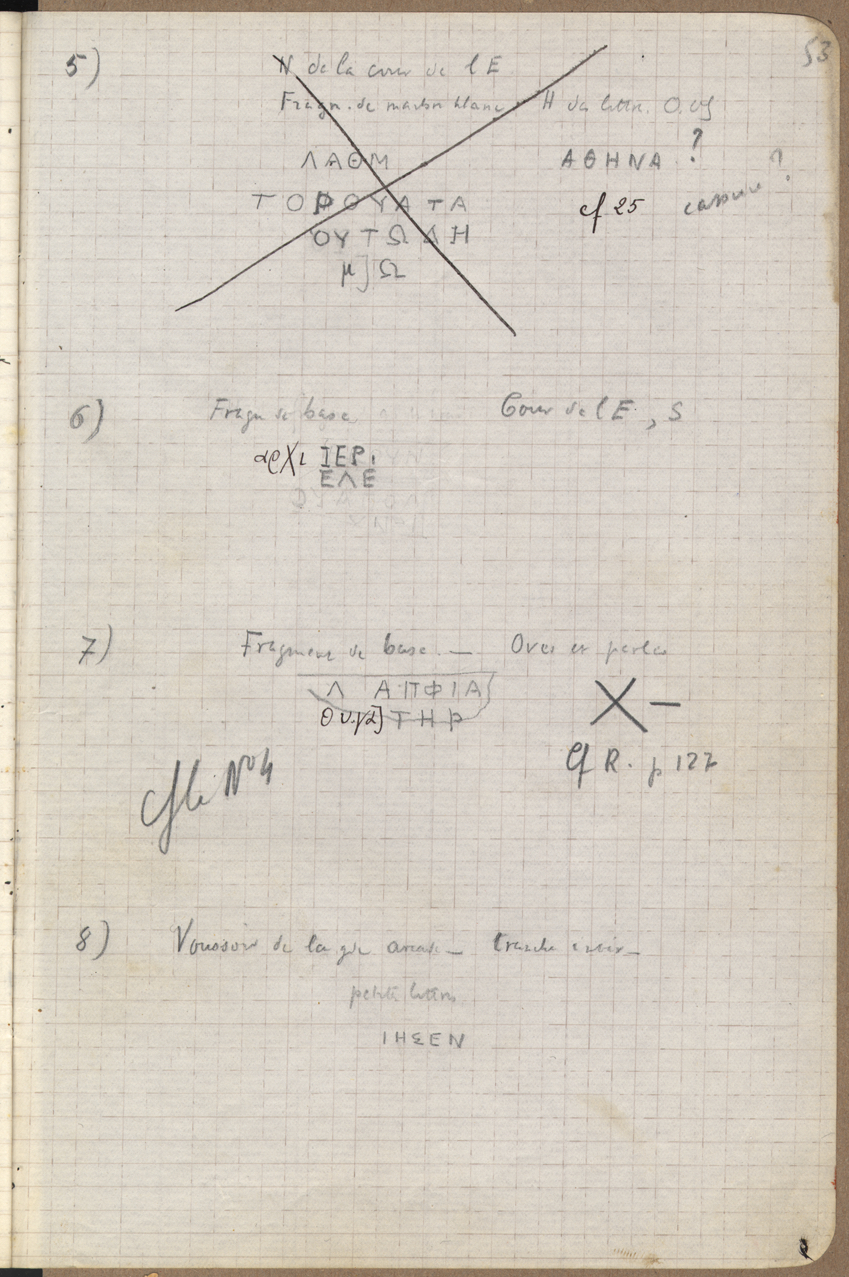 53
5) N de la cour de l E
Fragm. de marbre blanc. H des lettr. 0.05
ΛΑΘΜ ΑΘΗΝΑ ?
ΤΟΡΟΥΑΤΑ cf 25 cassure ?
ΟΥΤΩΔΗ
μ]Ω
6) Fragm de base Cour de l E, S
αρχι ΙΕΡΙ
ΕΛΕ
7) Fragment de base. — Oves et perles
Λ ΑΠΦΙΑ
θυγα]ΤΗΡ X —
Cf R. p 127
Cf le No 4
8) Voussoir de la gde arcade — tranche
petites lettres
ΙΗΣΕΝ